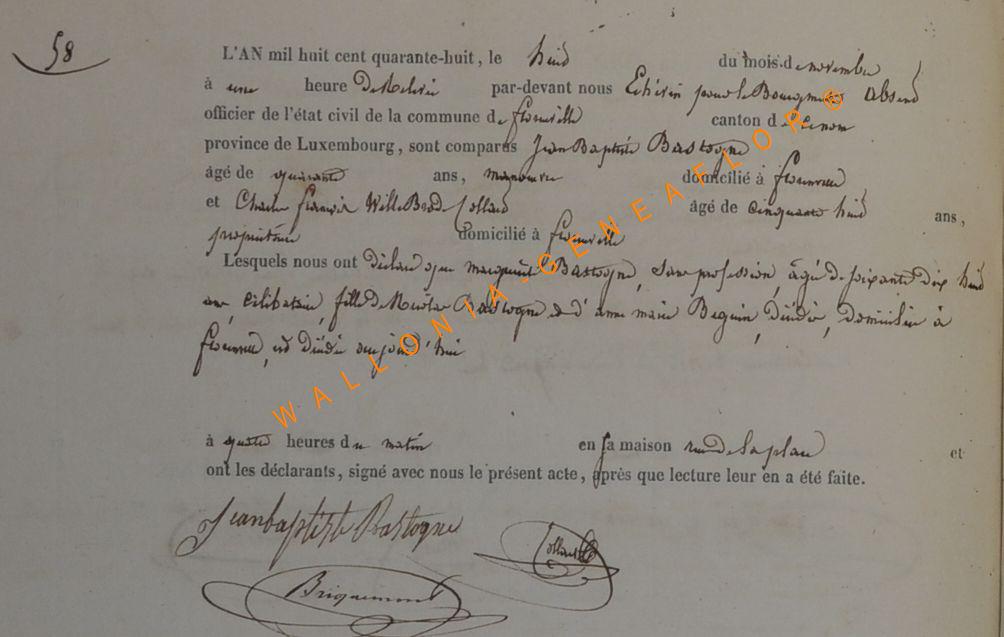 58
L'AN mil huit cent quarante-huit, le huit du mois de novembre
à une heure de Relevée par-devant nous Echevin pour le Bourgmestre absent
officier de l'état civil de la commune de florenville canton d
province de Luxembourg, sont comparus Jean Baptiste Bastogne
âgé de quarante ans, manoeuvre domicilié à florenville
et Charles françois WilleBrod Collard âgé de cinquante huit ans,
propriétaire domicilié à florenville
Lesquels nous ont déclaré que marguerite Bastogne, sans profession, âgée de soixante dix huit
ans, célibataire, fille de Nicolas Bastogne et d'anne marie Beguin, décédés, domiciliée à
florenville, est décédée aujourd'hui
à quatre heures du matin en sa maison rue de la place et
ont les déclarants, signé avec nous le présent acte, après que lecture leur en a été faite.
Jeanbaptiste Bastogne
Collard
Briquemont
WALLONIA-GENEAFLOR®